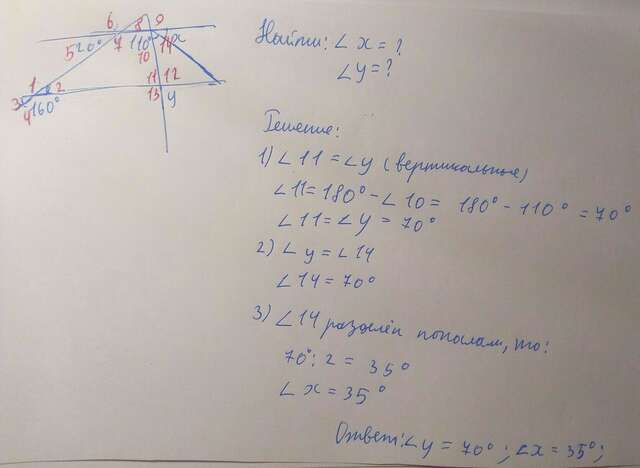 6 8 9
5 20° 7 110° 14 x
10
1 2 11 12
3 160° 13 y
4
Найти: ∠ x = ?
∠ y = ?
Решение:
1) ∠ 11 = ∠ y (вертикальные)
∠ 11 = 180° - ∠ 10 = 180° - 110° = 70°
∠ 11 = ∠ y = 70°
2) ∠ y = ∠ 14
∠ 14 = 70°
3) ∠ 14 разделён пополам, то:
70° : 2 = 35°
∠ x = 35°
Ответ: ∠ y = 70° ; ∠ x = 35° ;